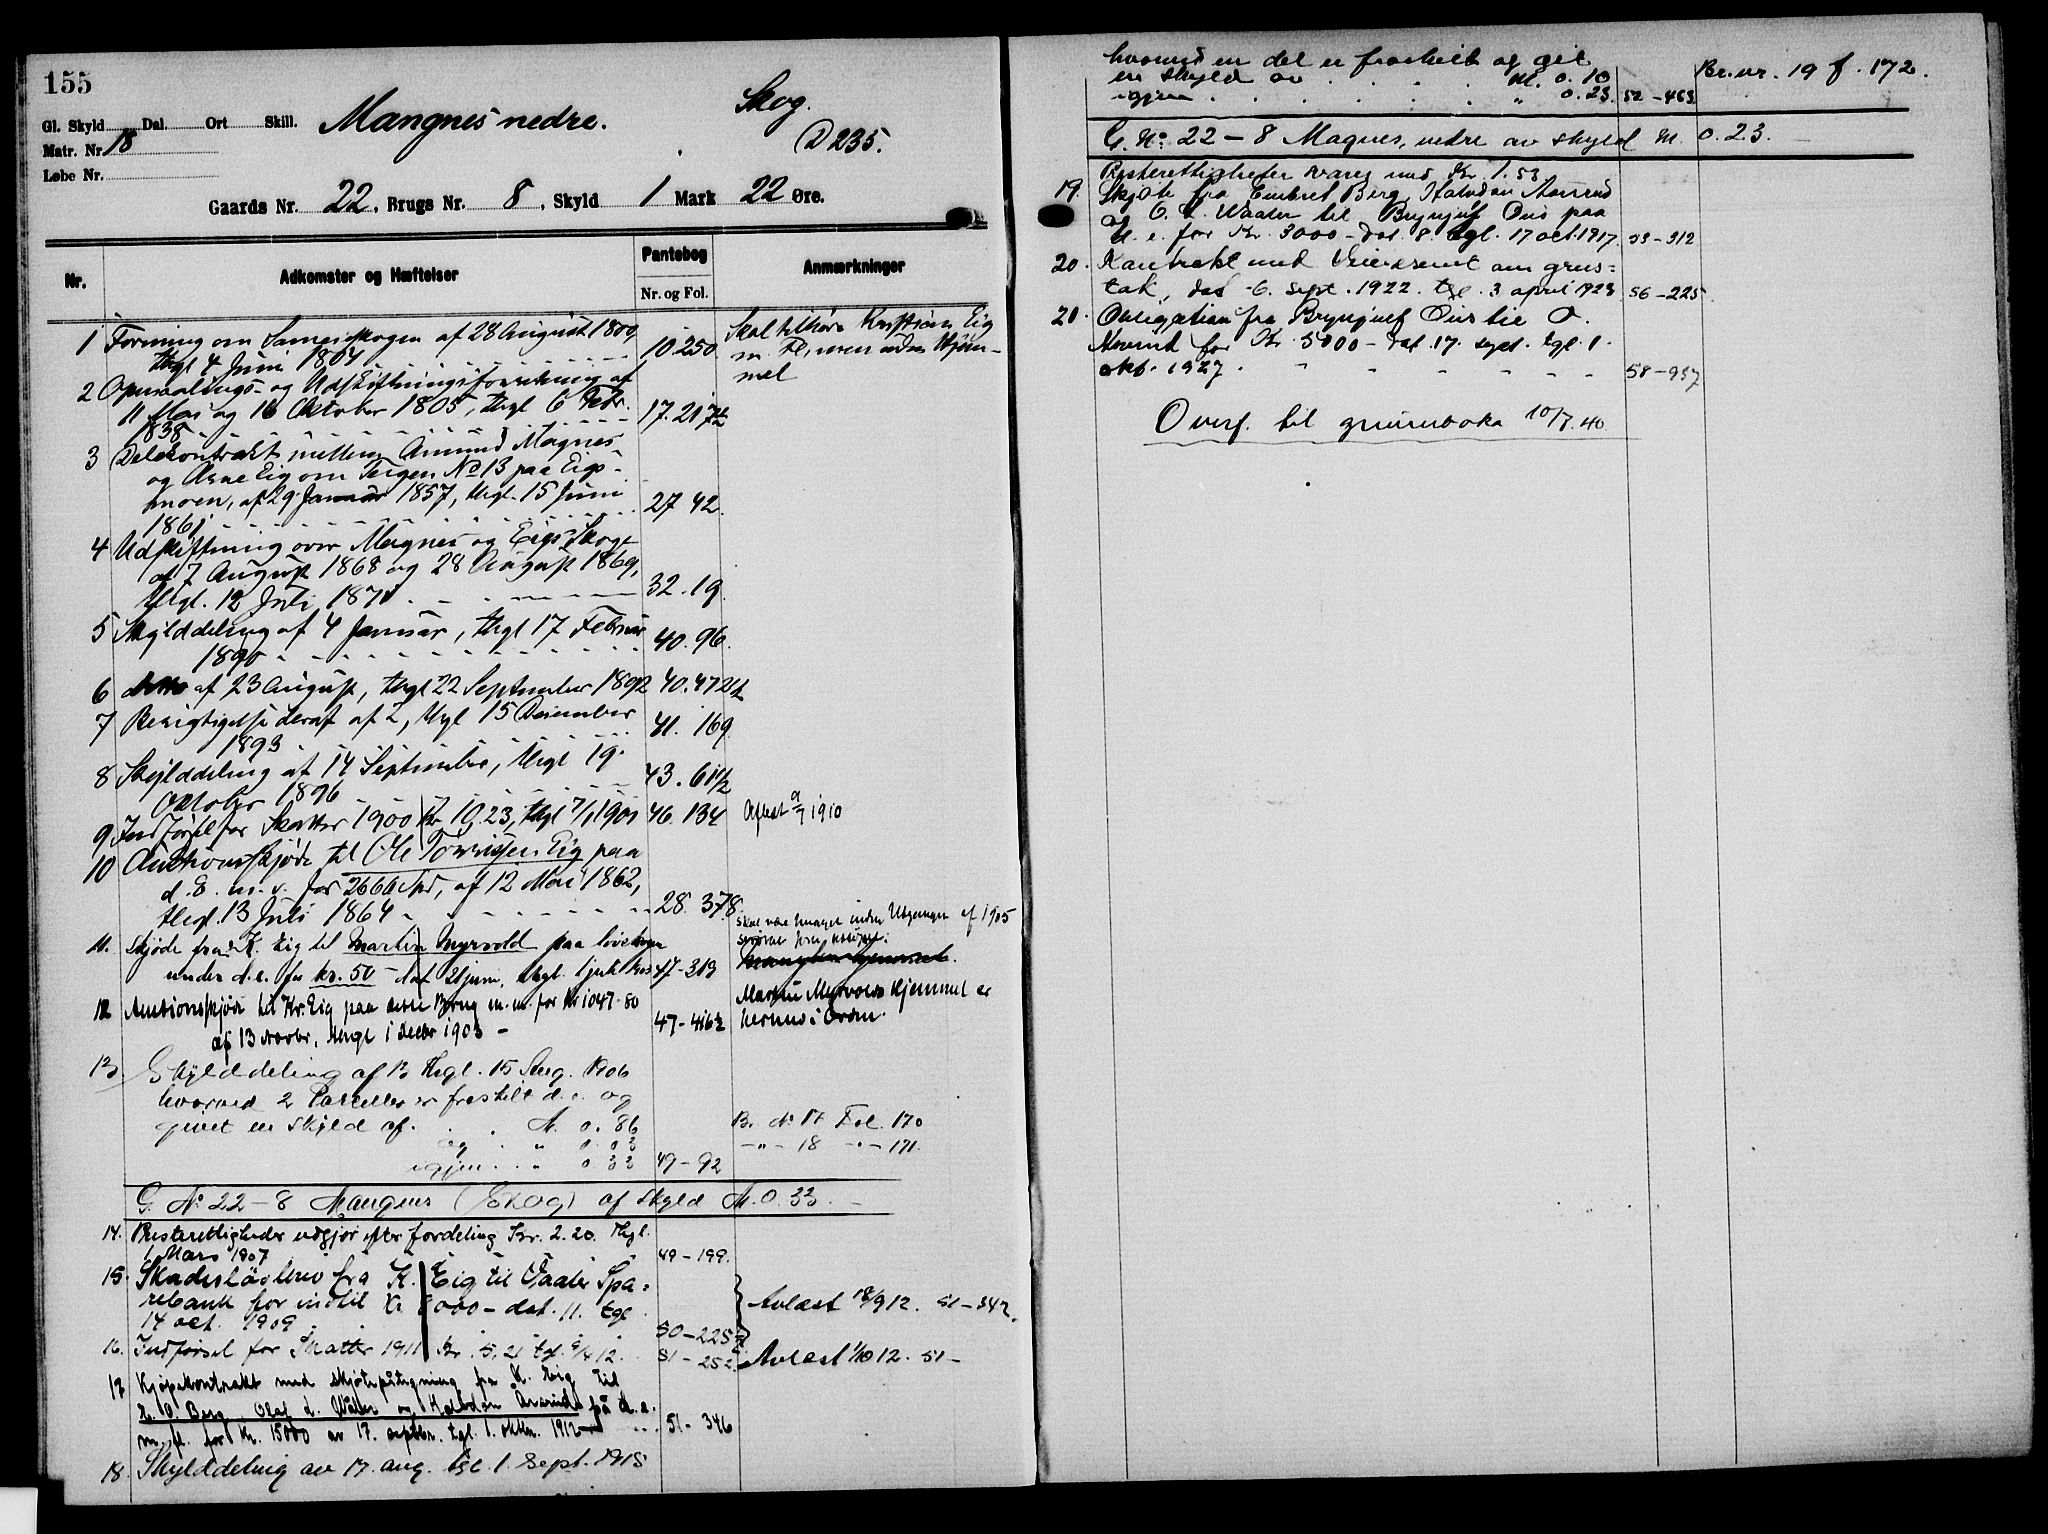 155
Gl. Skyld Dal. Ort Skill.
Mangnes nedre.
Skog.
Matr. Nr. 18
D 235.
Løbe Nr.
Gaards Nr. 22, Brugs Nr. 8, Skyld 1 Mark 22 Øre.
Nr.
Adkomster og Hæftelser
Pantebog
Nr. og Fol.
Anmærkninger
1 Forening om Sameieskogen af 28 August 1800,
thgl 4 Juni 1804 10.250
Skal tilhøre Kristian Eig
m. Fl, men uden Hjem-
mel
2 Opmaalings- og Udskiftningsforretning af
11 Mai og 16 Oktober 1805, thgl 6 Febr.
1838 17.217½
3 Delekontrakt mellem Amund Magnes
og Arne Eig om Teigen No 13 paa Eigs-
moen, af 29 Januar 1857, thgl. 15 Juni
1861 27 42.
4 Udskiftning over Magnes og Eigs Skoge
af 7 August 1868 og 28 August 1869,
thgl. 12 Juli 1871 32.19.
5 Skylddeling af 4 Januar, thgl 17 Februar
1890 40.96.
6 ditto af 23 August, thgl 22 September 1892 40.472½
7 Berigtigelse deraf af 2, thgl 15 December
1893 41.169
8 Skylddeling af 14 September, thgl 19.
Oktober 1896 43.61½
9 Indførsel for Skatter 1900 Kr 10.23, thgl 7/1 1901 46.134 Aflæst 9/7 1910
10 Auktionsskjøde til Ole Torrissen Eig paa
d. E. m. v. for 2666 Spd, af 12 Mai 1862,
thgl. 13 Juli 1864 28.378.
11. Skjøde fra K. Eig til Martin Myrvold paa
under d. e. for kr. 50 - dat 2 juni, thgl. 1 juli 47-319
Skal være af 1905
12 Auktionsskjøde til Kr. Eig paa dette Brug m. m. for Kr 1047-80
af 13 Novbr, thgl 1 Decbr 1903 - 47-416½
Martin Myrvolds Hjemmel er
13. Skylddeling af 13 thgl. 15 Aug. 1906
hvorved 2 Parceller er fraskilt d. e. og
givet en skyld af. M. 0.86 Br. No 17 Fol. 170
og " 0.03 -"- 18 -"- 171.
igjen " 0 33 49-92
G. No 22-8 Mangnes (Skog) af skyld M. 0.33.
14. Presterettigheder udgjør efter fordeling Kr. 2.20. Thgl.
1 Mars 1907 49-199.
15. Skadesløsbrev fra K. Eig til Vaaler Spa-
rebank for indtil Kr 8000 - dat. 11. tgl
14 oct. 1909 50-225½
Avlæst 18/9 12. 51-342.
16. Indførsel for Skatter 1911 Kr. 5,21 tgl. 9/4 12. 51-252 Avlæst 1/10 12. 51-
17 Kjøpekontrakt med skjøtepåtegning fra K. Eig til
E. O. Berg, Olaf L. Waaler og Halvdan Aasrud på d. e.
m. fl. for Kr. 15000 av 17. septbr. tgl. 1. oktbr. 1912 51-346
18. Skylddeling av 17. aug. tgl. 1. Sept. 1915
hvorved en del er fraskilt og git
en skyld av M. 0.10 Br. nr. 19 f. 172.
igjen " 0.23 52-463
G. No 22-8 Magnes, nedre av skyld M. 0.23.
Presterettigheter svares med Kr. 1.53
19. Skjøte fra Embret Berg, Halvdan Aasrud
og O. L. Waaler til Brynjulf Ous paa
d. e. for Kr. 3000 - dat. 8. tgl. 17 oct. 1917 53-312
20. Kontrakt med Veivesenet om grus-
tak, dat 6. sept. 1922. tgl. 3 april 1923 56-225.
21. Obligation fra Brynjulf Ous til O.
for Kr. 5000 - dat. 17. sept. tgl. 1.
okt. 1927. 58-937
Overf. til grunnboka 10/7.40